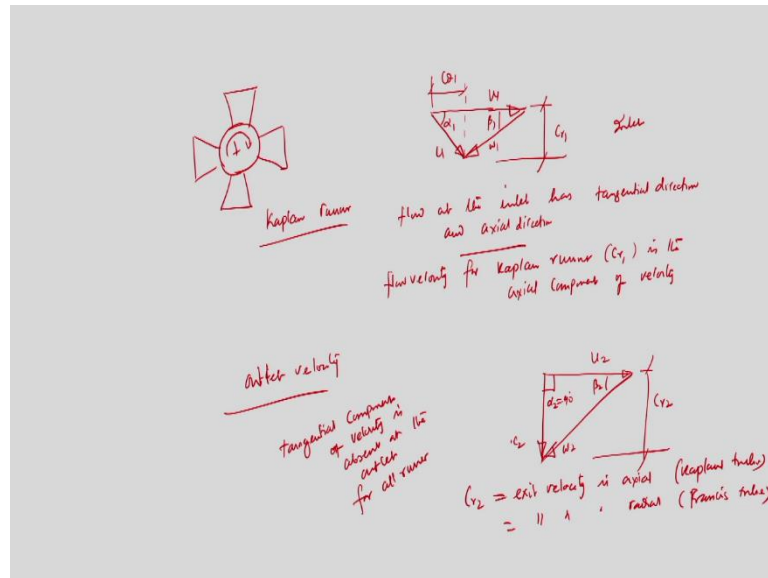 Cθ1
U1
α1
β1
C1
W1
Cr1
Inlet
Kaplan runner
flow at the inlet has tangential direction
and axial direction
flow velocity for Kaplan runner (Cr1) is the
axial component of velocity
outlet velocity
tangential component
of velocity is
absent at the
outlet
for all runner
U2
α2=90
β2
C2
W2
Cr2
Cr2 = exit velocity is axial (Kaplan turbine)
= " " " radial (Francis turbine)